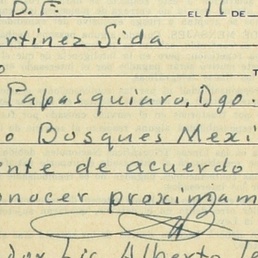 D.F. EL 11 DE
rtinez Sida
o T
Papasquiaro, Dgo.
o Bosques Mexi
ente de acuerdo
onocer proximam
Lic Alberto Te